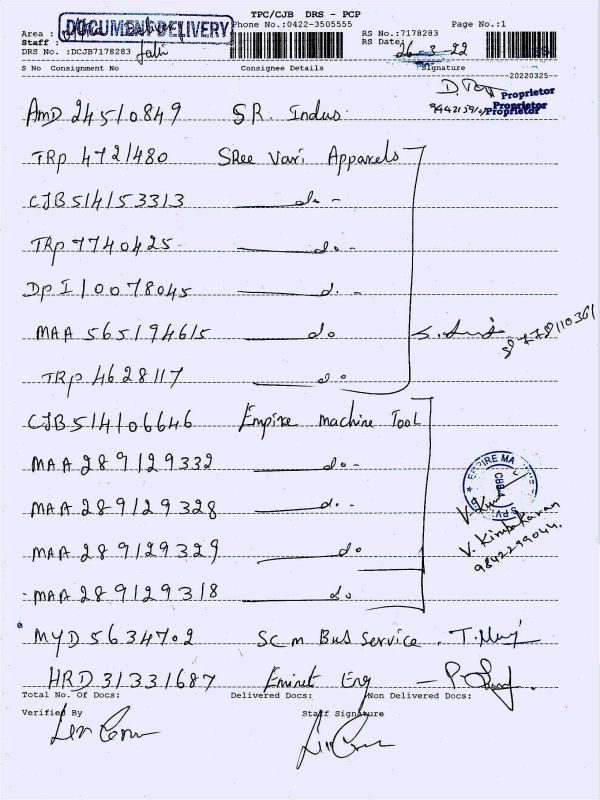 TPC/CJB DRS - PCP
DOCUMENT DELIVERY
Phone No.:0422-3505555
Page No.:1
Area :
RS No.:7178283
Staff :
RS Date: 26-3-22
DRS No. :DCJB7178283
S No Consignment No Consignee Details Signature
20220325-
Proprietor
Proprietor
Proprietor
AMD 24510849 S.R. Indus
TRP 4721480 SRee Vari Apparels
CJB514153313 do -
TRP 7740425 do -
DPI10078045 d. -
MAA 565194615 do
TRP 4628117 do
CJB514106646 Empire machine Tool
MAA 289129332 do -
MAA 289129328 do -
EMPIRE MA
CBE-4
V. Kirubakaran
9842299044.
MAA 289129329 do
MAA 289129318 do
MYD 5634702 SCM Bus Service.
HRD 31331687 Eminet Eng
Total No. Of Docs: Delivered Docs: Non Delivered Docs:
Verified By Staff Signature